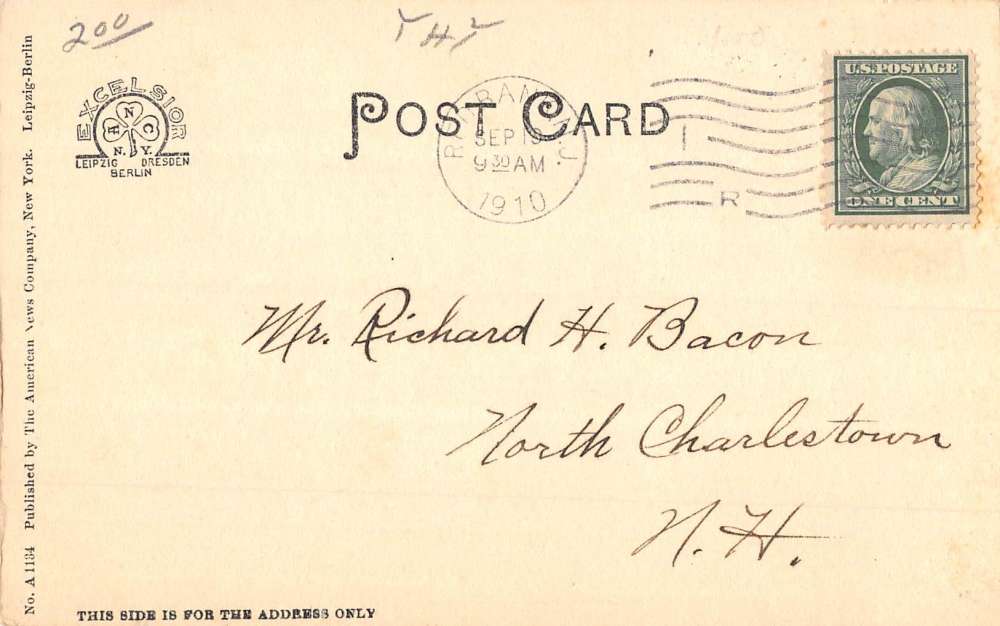 200
THY
EXCELSIOR
A N C
N.Y.
LEIPZIG DRESDEN
BERLIN
POST CARD
SEP 19
9 30 AM
1910
R
U.S. POSTAGE
ONE CENT
Mr. Richard H. Bacon
North Charlestown
N. H.
No. A 1134 Published by The American News Company, New York. Leipzig-Berlin
THIS SIDE IS FOR THE ADDRESS ONLY